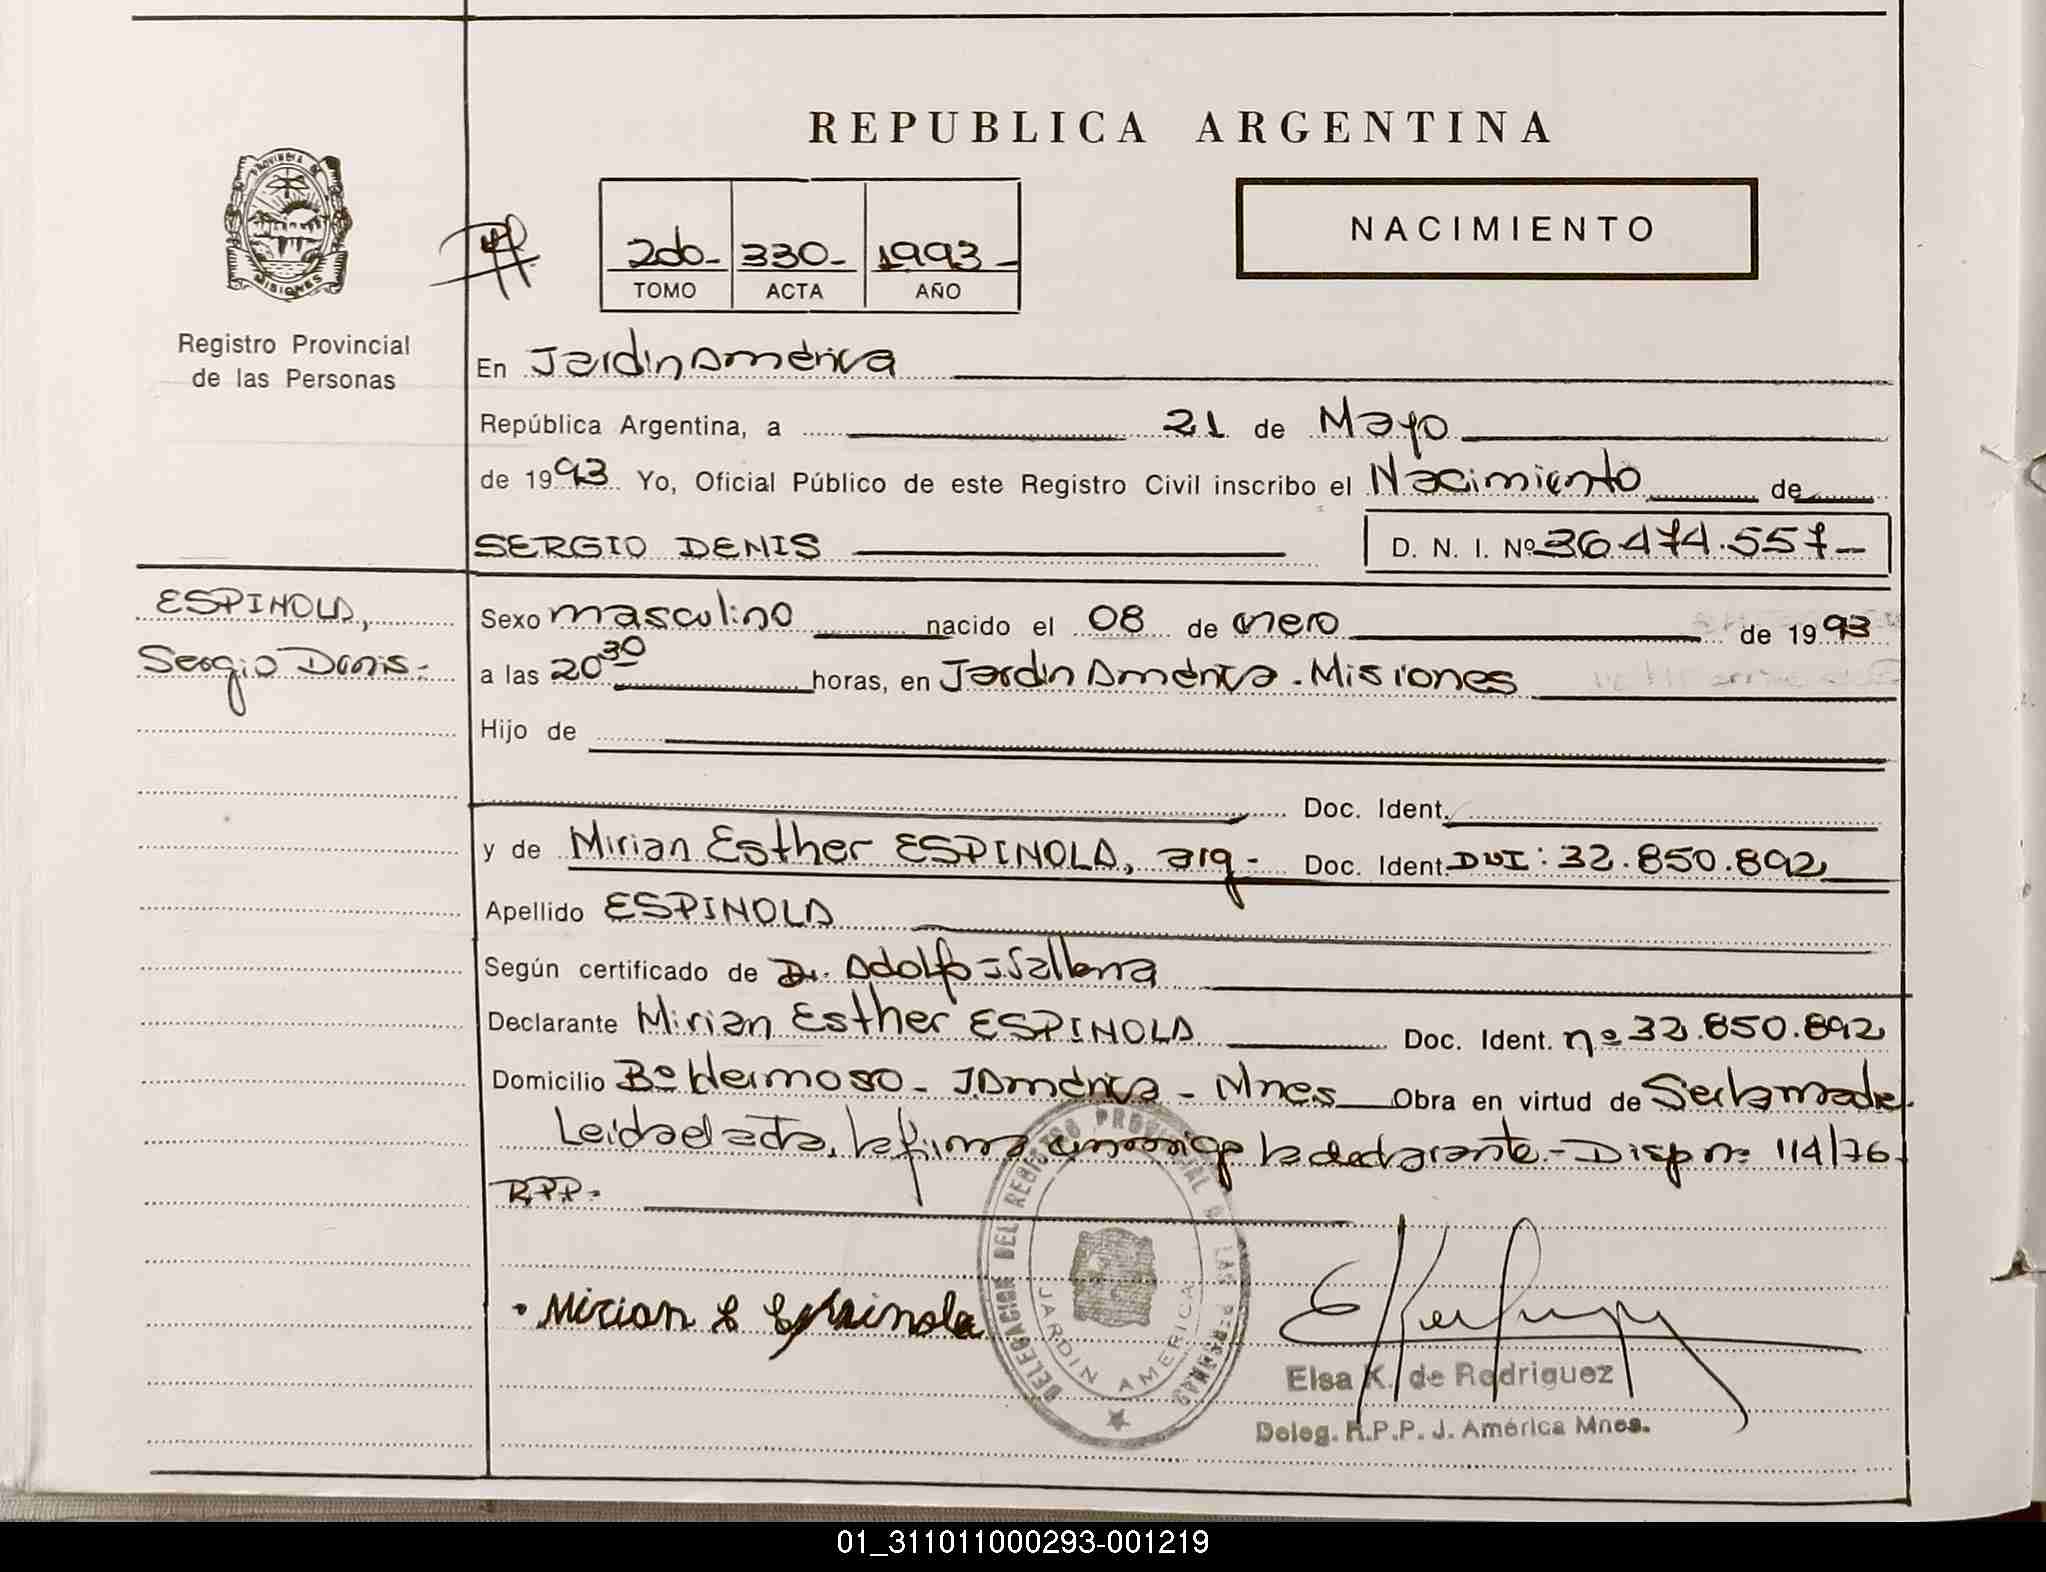 REPUBLICA ARGENTINA
PROVINCIA DE
MISIONES
Registro Provincial
de las Personas
2do- 330- 1993-
TOMO ACTA AÑO
NACIMIENTO
En Jardin América
República Argentina, a 21 de Mayo
de 1993 Yo, Oficial Público de este Registro Civil inscribo el Nacimiento de
SERGIO DENIS D. N. I. Nº 36.474.557-
ESPINOLA,
Sergio Denis.-
Sexo masculino nacido el 08 de enero de 1993
a las 20 30 horas, en Jardin América. Misiones
Hijo de
Doc. Ident.
y de Mirian Esther ESPINOLA, arg- Doc. Ident. DNI: 32.850.892
Apellido ESPINOLA
Según certificado de Dr. Adolfo
Declarante Mirian Esther ESPINOLA Doc. Ident. nº 32.850.892
Domicilio Bº Hermoso - J. América - Mnes Obra en virtud de Ser la madre
Leida el acta, la firma conmigo la declarante.- Disp nº 114/76
R.P.P.-
Mirian E Espinola
DELEGACION DEL REGISTRO PROVINCIAL DE LAS PERSONAS
JARDIN AMERICA
Elsa K. de Rodriguez
Deleg. R.P.P. J. América Mnes.
01_311011000293-001219